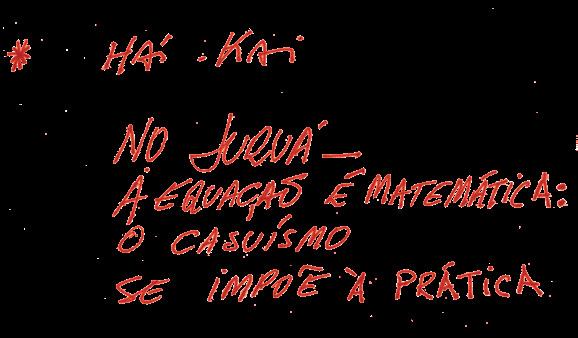 * HAI . KAI
NO JUQUÁ —
A EQUAÇÃO É MATEMÁTICA:
O CASUÍSMO
SE IMPÕE À PRÁTICA